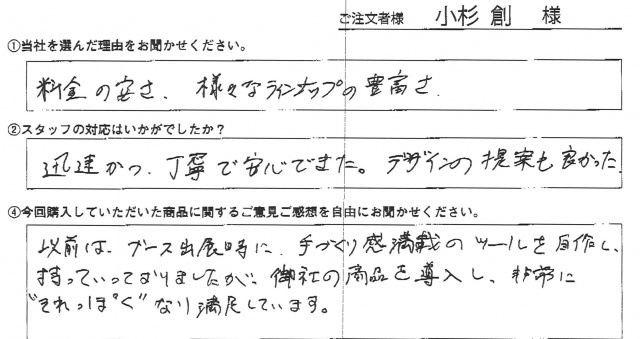 ご注文者様 小杉 創 様
①当社を選んだ理由をお聞かせください。
料金の安さ、様々なラインナップの豊富さ
②スタッフの対応はいかがでしたか？
迅速かつ、丁寧で安心できた。デザインの提案も良かった
④今回購入していただいた商品に関するご意見ご感想を自由にお聞かせください。
以前は、ブース出展時に、手づくり感満載のツールを自作し、
持っていっておりましたが、御社の商品を導入し、非常に
"それっぽく"なり満足しています。